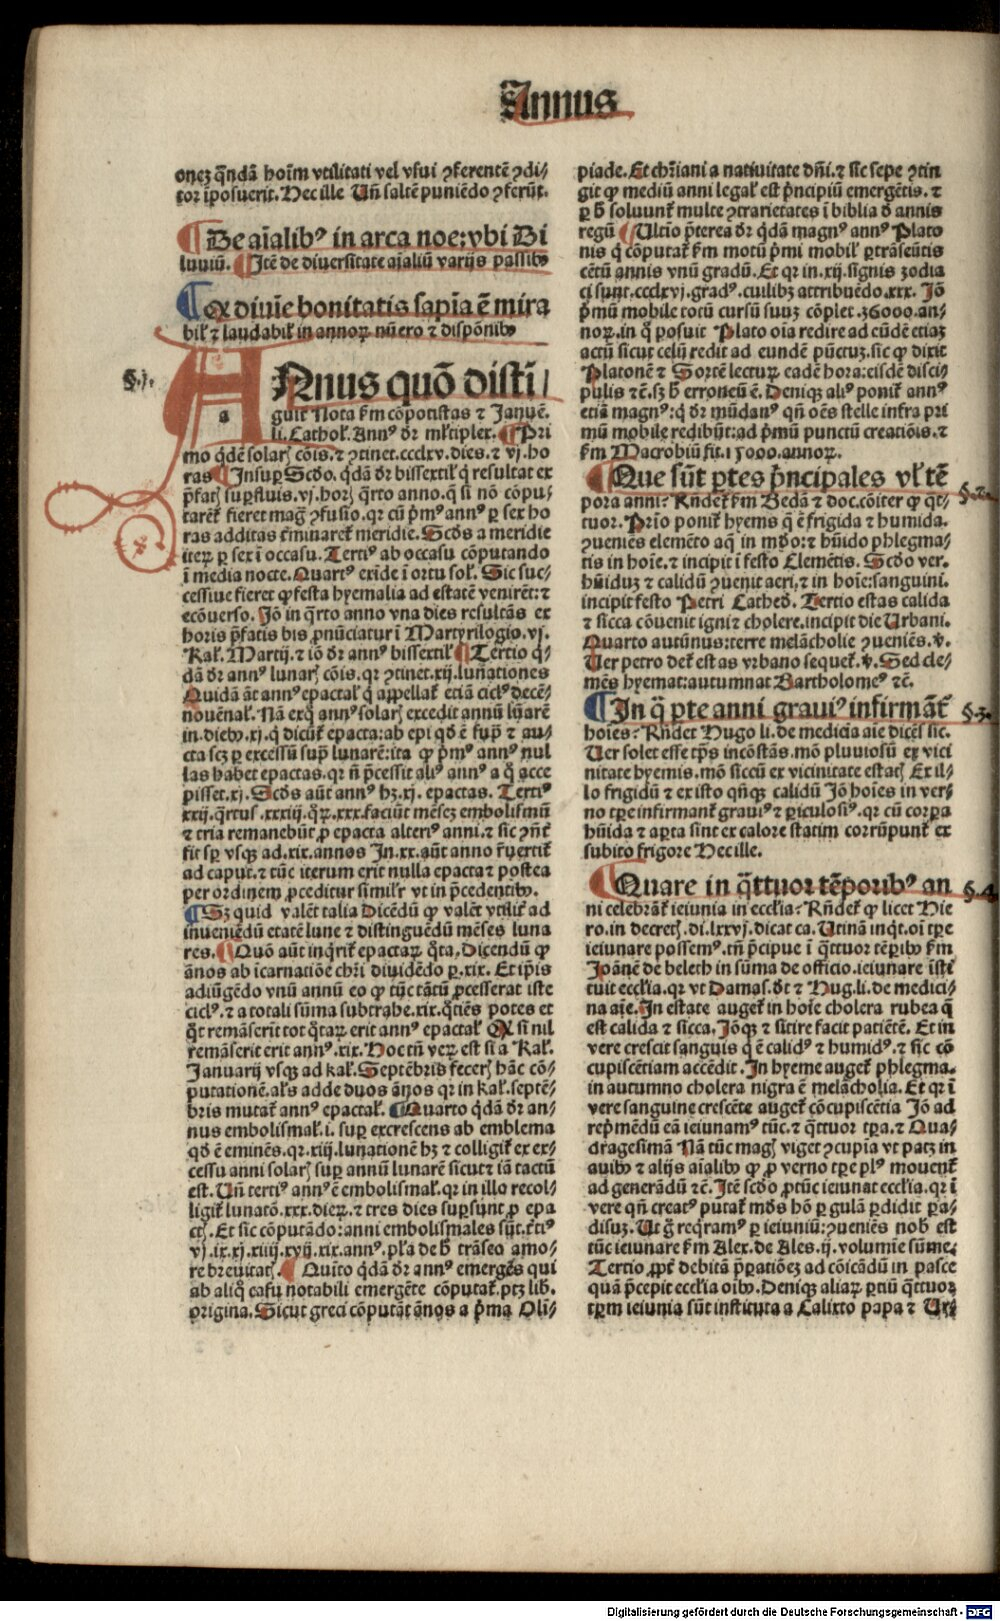 Annus
onez q̄ndā hoīm vtilitati vel vsui ꝯferentē ꝯdi⸗
tor īposuerit. Hec ille Uñ saltē puniēdo ꝯferūt.
¶ De aīalibꝰ in arca noe: vbi Di
luuiū. ¶ Itē de diuersitate aīaliū varijs passibꝫ
¶ Ex diuīe bonitatis sapīa ē mira
bił ⁊ laudabił in annoꝝ nūero ⁊ dispōnibꝫ
§.j.
ANnus quō disti⸗
a
guit Nota ẜm cōpotistas ⁊ Januē.
li. Cathoł. Annꝰ dr̄ młtiplex. ¶ Pri
mo q̄dē solarꝭ cōis. ⁊ ꝯtinet. ccclxv. dies. ⁊ vj. ho
ras ¶ Insuꝑ Scd̄o. q̄dā dr̄ bissextił q̇ resultat ex
p̄fatꝭ suꝑfluis. vj. horꝭ q̄rto anno. q̄ si nō cōpu⸗
tarēt̄ fieret mag̃ ꝯfusio. qꝛ cū p̄mꝰ annꝰ ꝑ sex ho
ras additas t̄minaret̄ meridie. Scd̄s a meridie
iteꝝ ꝑ sex ī occasu. Tertiꝰ ab occasu cōputando
ī media nocte. Quartꝰ exīde ī ortu soł. Sic suc⸗
cessiue fieret ꝙ festa hyemalia ad estatē venirēt: ⁊
ecōuerso. Jō in q̄rto anno vna dies resultās ex
horis p̄fatis bis ꝓnūciatur ī Martyrilogio. vj.
Kał. Martij. ⁊ iō dr̄ annꝰ bissextił ¶ Tertio q̄⸗
dā dr̄ annꝰ lunarꝭ cōis. qꝛ ꝯtinet. xij. lunationes
Quidā āt annꝰ epactał q̇ appellat̄ etiā ciclꝰ decē⸗
nouēnał. Nā exq̊ annꝰ solarꝭ excedit annū lūarē
in diebꝫ. xj. q̇ dicūt̄ epacta: ab epi qd̄ ē suꝑ ⁊ au⸗
cta scꝫ ꝑ excessū suꝑ lunarē: ita ꝙ p̄mꝰ annꝰ nul
las habet epactas. qꝛ ñ p̄cessit aliꝰ annꝰ a q̊ acce
pisset. xj. Scd̄s aūt annꝰ hꝫ. xj. epactas. Tertiꝰ
xxij. q̄rtus. xxxiij. q̄ꝝ. xxx. faciūt mēsez embolismū
⁊ tria remanebūt ꝓ epacta alteriꝰ anni. ⁊ sic ꝯñt̄
fit sꝑ vsqꝫ ad. xix. annos In. xx. aūt anno r̄uertit̄
ad caput. ⁊ tūc iterum erit nulla epacta ⁊ postea
per ordinem ꝓceditur similr̄ vt in p̄cedentibꝫ.
¶ Sꝫ quid valēt talia Dicēdū ꝙ valēt vtilit̄ ad
inueniēdū etatē lune ⁊ distinguēdū mēses luna
res. ¶ Quō aūt inq̇rit̄ epactaꝝ q̄ta. Dicendū ꝙ
ānos ab īcarnatiōe chr̄i diuidēdo ꝑ. xix. Et ip̄is
adiūgēdo vnū annū eo ꝙ tūc tātū ꝓcesserat iste
ciclꝰ. ⁊ a totali sūma subtrahe. xix. q̄tiēs potes et
q̄t remāserīt tot q̄taꝝ erit annꝰ epactał Qꝫ si nil
remāserit erit annꝰ. xix. Hoc tñ veꝝ est si a Kał.
Januarij vsqꝫ ad kał. Septēbris fecerꝭ hāc cō⸗
putationē. als adde duos ānos qꝛ in kał. septē⸗
bris mutat̄ annꝰ epactał. ¶ Quarto q̄dā dr̄ an⸗
nus embolismał. i. suꝑ excrescens ab emblema
qd̄ ē eminēs. qꝛ. xiij. lunationē hꝫ ⁊ colligit̄ ex ex⸗
cessu anni solarꝭ suꝑ annū lunarē sicut ⁊ iā tactū
est. Uñ tertiꝰ annꝰ ē embolismał. qꝛ in illo recol⸗
ligit̄ lunatō. xxx. dieꝝ. ⁊ tres dies suꝑsūnt ꝓ epa
ctꝭ. Et sic cōputādo: anni embolismales sūt. t̄tiꝰ
vj. ix. xj. xiiij. xvij. xix. annꝰ. pła de h̄ trāseo amo⸗
re breuitatꝭ. ¶ Quīto q̄dā dr̄ annꝰ emergēs qui
ab aliq̊ casu notabili emergēte cōputat̄. ptꝫ lib.
origina. Sicut greci cōputāt ānos a p̄ma Oli⸗
piade. Et chr̄iani a natiuitate dn̄i. ⁊ sic sepe ꝯtin
git ꝙ mediū anni legał est p̄ncipiū emergētis. ⁊
ꝑ h̄ soluunt̄ multe ꝯtrarietates ī biblia d̄ annis
regū ¶ Ultīo p̄terea dr̄ q̄dā magnꝰ annꝰ Plato
nis q̇ cōputat̄ ẜm motū p̄mi mobił ꝑtrāseūtis
cētū annis vnū gradū. Et qꝛ in. xij. signis zodia
ci sunt. ccclxvj. gradꝰ. cuilibꝫ attribuēdo. xxx. Jō
p̄mū mobile totū cursū suuꝫ cōplet. 36000. an⸗
noꝝ. in q̊ posuit Plato oīa redire ad eūdē etiaꝫ
actū sicut celū redit ad eundē pūctuꝫ. sic ꝙ dixit
Platonē ⁊ Sortē lecturꝭ eadē hora: eisdē disci⸗
pulis ⁊ē. sꝫ h̄ erroneū ē. Deniqꝫ aliꝰ ponit̄ annꝰ
etiā magnꝰ: q̇ dr̄ mūdanꝰ qñ oēs stelle infra pri
mū mobile redibūt: ad p̄mū punctū creatiōis. ⁊
ẜm Macrobiū fit. 15000. annoꝝ.
¶ Que sūt ꝑtes p̄ncipales vł tē §.2.
pora anni: Rñdet̄ ẜm Bedā ⁊ doc. cōiter ꝙ q̄t⸗
tuor. Prīo ponit̄ hyems q̄ ē frigida ⁊ humida.
ꝯueniēs elemēto aq̄ in mō: ⁊ hūido phlegma⸗
tis in hoīe. ⁊ incipit ī festo Clemētis. Scd̄o ver.
hūiduꝫ ⁊ calidū ꝯuenit aeri, ⁊ in hoīe: sanguini.
incipit festo Petri Cathed. Tertio estas calida
⁊ sicca cōuenit igni ⁊ cholere. incipit die Urbani.
Quarto autūnus: terre melācholie ꝯueniēs. v̄.
Uer petro det̄ estas vrbano sequet̄. v̄. Sed cle⸗
mēs hyemat: autumnat Bartholomeꝰ ⁊ē.
¶ In q̄ ꝑte anni grauiꝰ infirmāt̄ §.3.
hoīes: Rñdet Hugo li. de medicīa aīe dicēs sic.
Uer solet esse tp̄s incōstās. mō pluuiosū ex vici
nitate hyemis. mō siccū ex vicinitate estatꝭ Ex il⸗
lo frigidū ⁊ ex isto qñqꝫ calidū Jō hoīes in ver⸗
no tꝑe infirmant̄ grauiꝰ ⁊ ꝑiculosiꝰ. qꝛ cū corꝑa
hūida ⁊ aꝑta sint ex calore statim corrūpunt̄ ex
subito frigore Hec ille.
¶ Quare in q̄ttuor tēporibꝰ an §.4.
ni celebrāt̄ ieiunia in eccl̄ia: Rñdet̄ ꝙ licet Hie
ro. in decretꝭ. di. lxxvj. dicat ca. Utinā inq̇t. oī tꝑe
ieiunare possemꝰ. tñ p̄cipue ī q̄ttuor tēꝑibꝫ ẜm
Joānē de beleth in sūma de officio. ieiunare īsti
tuit eccl̄ia. qꝛ vt Damas. dt̄ ⁊ Hug. li. de medici⸗
na aīe. In estate auget̄ in hoīe cholera rubea q̄
est calida ⁊ sicca. Jōqꝫ ⁊ sitire facit patiētē. Et in
vere crescit sanguis q̇ ē calidꝰ ⁊ humidꝰ. ⁊ sic cō
cupiscētiam accēdit. In hyeme auget̄ phlegma.
in autumno cholera nigra ē melācholia. Et qꝛ ī
vere sanguine crescēte auget̄ cōcupiscētia Jō ad
rep̄mēdū eā ieiunamꝰ tūc. ⁊ q̄ttuor tꝑa. ⁊ Qua⸗
dragesimā Nā tūc magꝭ viget ꝯcupīa vt patꝫ in
auibꝫ ⁊ alijs aīalibꝫ ꝙ ꝓ verno tꝑe plꝰ mouent̄
ad generādū ⁊ē. Itē scd̄o ꝓ tūc ieiunat eccl̄ia. qꝛ ī
vere qñ creatꝰ putat̄ mūdꝰ hō ꝑ gulā ꝑdidit ꝑa⸗
disuꝫ. Ut g̃ reqramꝰ ꝑ ieiuniū: ꝯueniēs nob̄ est
tūc ieiunare ẜm Alex. de Ales. ij. volumīe sūme.
Tertio, ꝓpt̄ debitā p̄ꝑatiōez ad cōicādū in pasce
quā p̄cepit eccl̄ia oībꝫ. Deniqꝫ aliaꝝ ꝑtiū q̄ttuoꝝ
tꝑm ieiunia sūt instituta a Calixto papa ⁊ Ur⸗
Digitalisierung gefördert durch die Deutsche Forschungsgemeinschaft - DFG